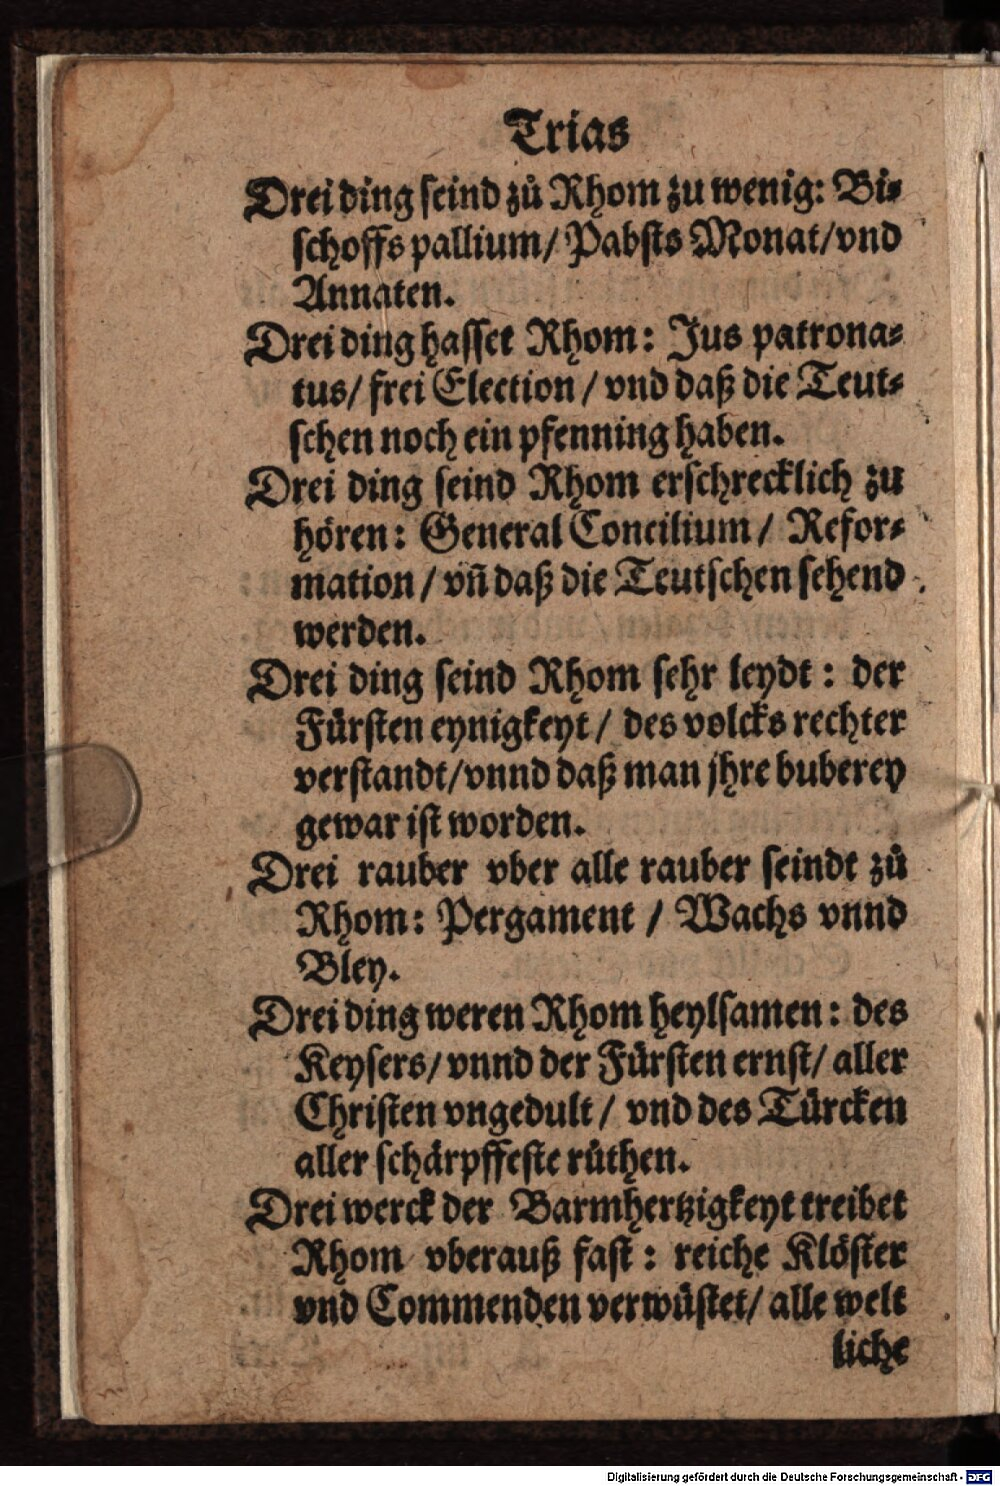 Trias
Drei ding seind zů Rhom zu wenig: Bi⸗
schoffs pallium/ Pabsts Monat/ vnd
Annaten.
Drei ding hasset Rhom: Jus patrona⸗
tus/ frei Election/ vnd daß die Teut⸗
schen noch ein pfenning haben.
Drei ding seind Rhom erschrecklich zu
hören: General Concilium/ Refor⸗
mation/ vñ daß die Teutschen sehend
werden.
Drei ding seind Rhom sehr leydt: der
Fürsten eynigkeyt/ des volcks rechter
verstandt/ vnnd daß man jhre buberey
gewar ist worden.
Drei rauber vber alle rauber seindt zů
Rhom: Pergament/ Wachs vnnd
Bley.
Drei ding weren Rhom heylsamen: des
Keysers/ vnnd der Fürsten ernst/ aller
Christen vngedult/ vnd des Türcken
aller schärpffeste růthen.
Drei werck der Barmhertzigkeyt treibet
Rhom vberauß fast: reiche Klöster
vnd Commenden verwüstet/ alle welt
liche
Digitalisierung gefördert durch die Deutsche Forschungsgemeinschaft - DFG